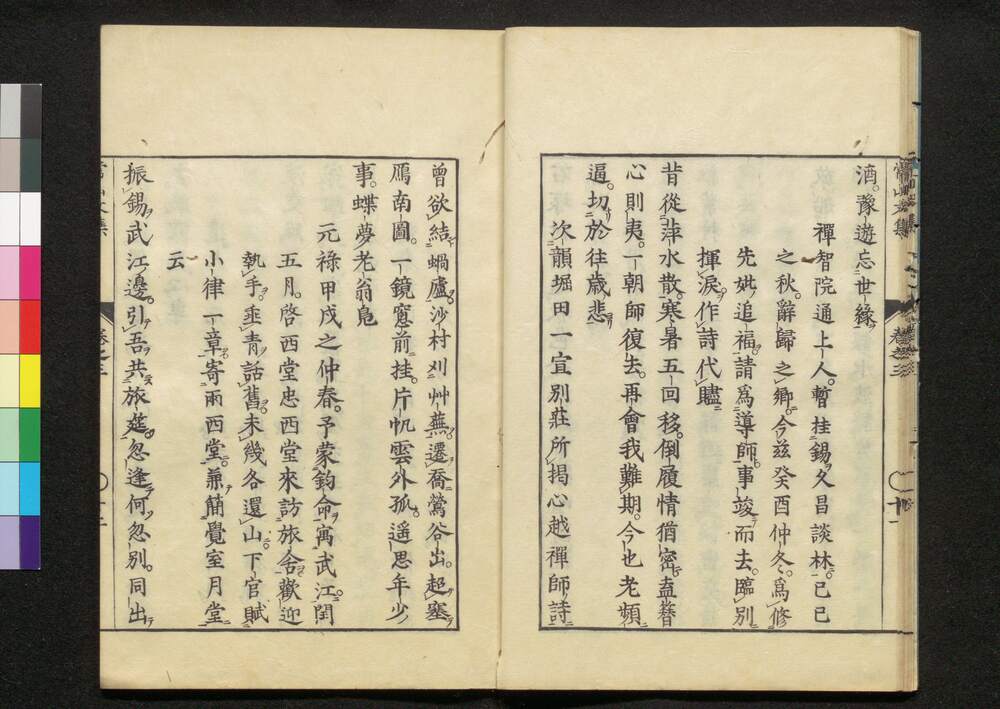 酒。豫遊忘世緣
禪智院通上人。暫挂錫久昌談林。己巳
之秋。辭歸之鄉。今茲癸酉仲冬。爲修
先妣追福。請爲導師。事竣而去。臨別
揮淚。作詩代贐
昔從萍水散。寒暑五回移。倒履情猶密。盍簪
心則夷。一朝師復去。再會我難期。今也老頻
逼。切於往歲悲
次韻堀田一宜別莊所揭心越禪師詩
曾欲結蝸廬。沙村刈艸蕪。遷喬鶯谷出。起塞
鴈南圖。一鏡窻前挂。片帆雲外孤。遥思年少
事。蝶夢老翁鳬
元祿甲戌之仲春。予蒙鈞命。寓武江。閏
五月。啓西堂忠西堂來訪旅舍。歡迎
執手。垂青話舊。未幾各還山。下官賦
小律一章。寄兩西堂。兼簡覺室月堂
云
振錫武江邊。引吾共旅筵。忽逢何忽別。同出